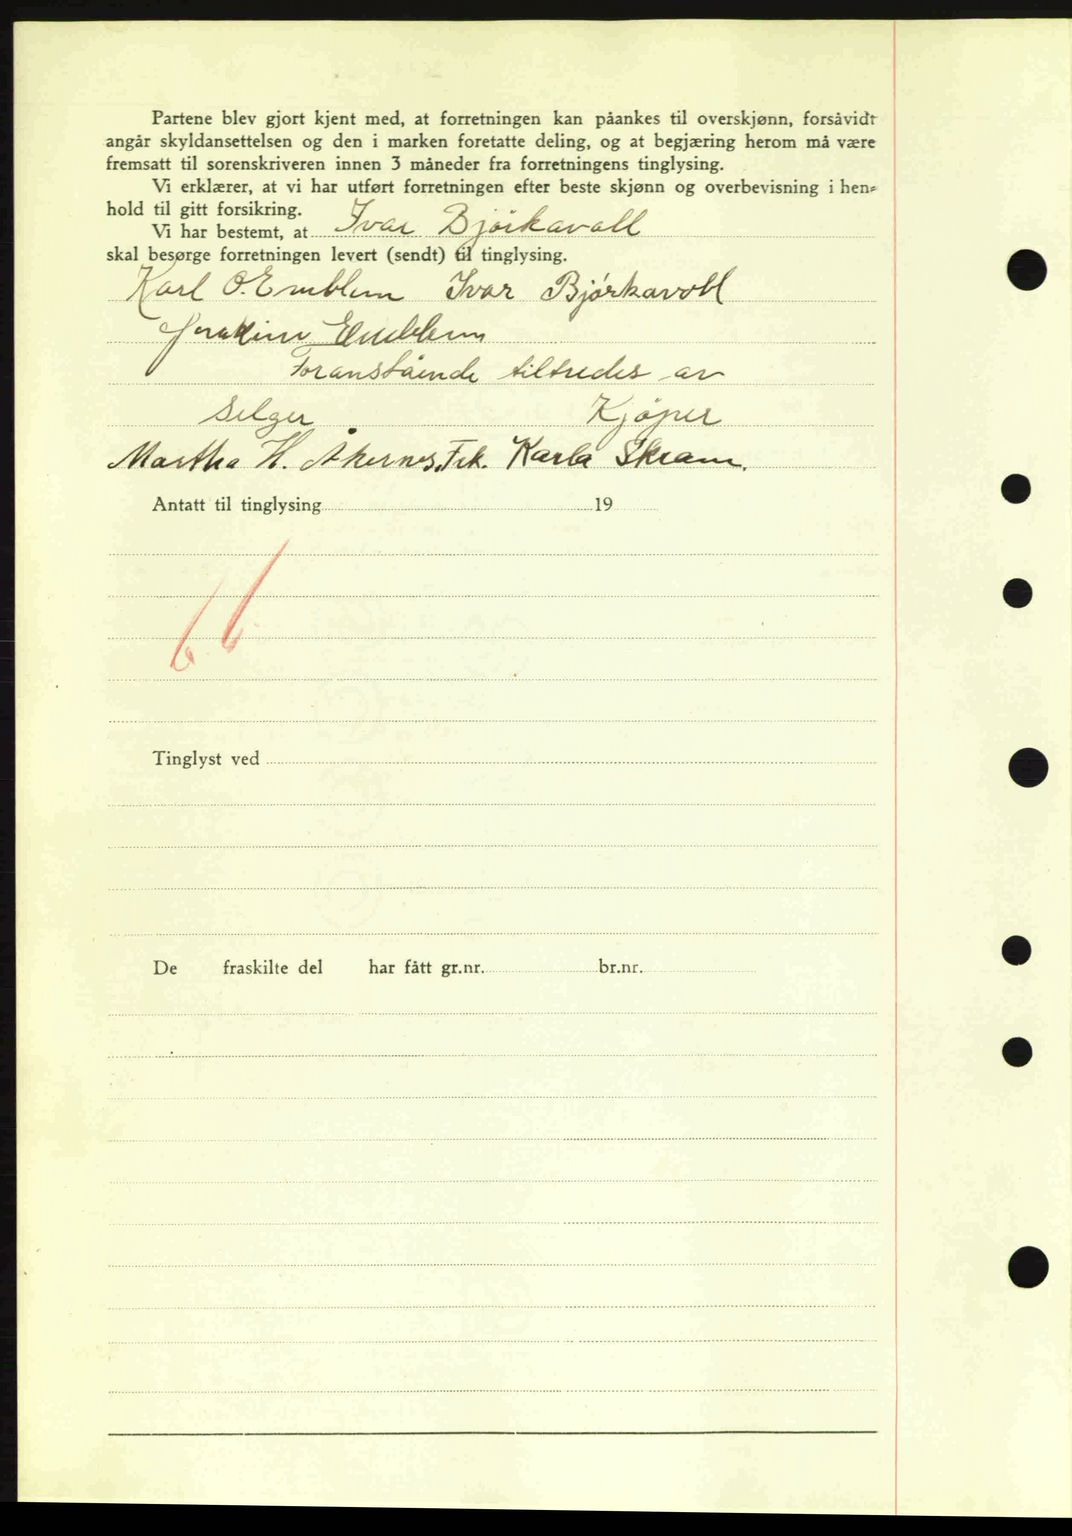 Partene blev gjort kjent med, at forretningen kan påankes til overskjønn, forsåvidt
angår skyldansettelsen og den i marken foretatte deling, og at begjæring herom må være
fremsatt til sorenskriveren innen 3 måneder fra forretningens tinglysing.
Vi erklærer, at vi har utført forretningen efter beste skjønn og overbevisning i hen-
hold til gitt forsikring.
Vi har bestemt, at Ivar Bjørkavoll
skal besørge forretningen levert (sendt) til tinglysing.
Karl O. Emblem Ivar Bjørkavoll
Emblem
Foranstående tiltredes av
Selger Kjøper
Martha H. Åkernes, Frk. Karla Skram.
Antatt til tinglysing 19
Tinglyst ved
De fraskilte del har fått gr.nr. br.nr.